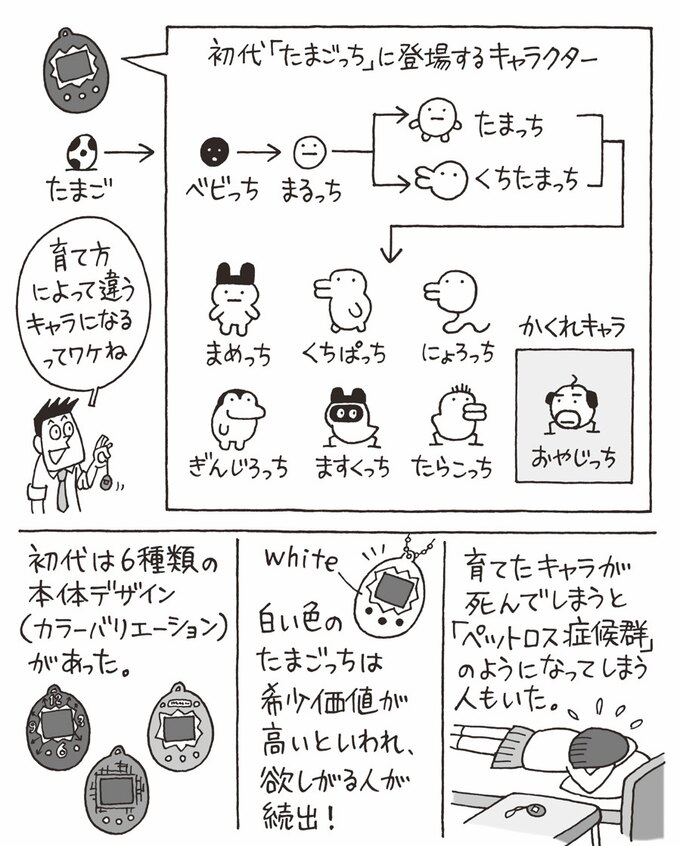 初代「たまごっち」に登場するキャラクター
たまご
ベビっち
まるっち
たまっち
くちたまっち
育て方
によって違う
キャラになる
ってワケね
まめっち
くちぱっち
にょろっち
かくれキャラ
ぎんじろっち
ますくっち
たらこっち
おやじっち
初代は6種類の
本体デザイン
(カラーバリエーション)
があった。
12
9
3
6
white
白い色の
たまごっちは
希少価値が
高いといわれ、
欲しがる人が
続出!
育てたキャラが
死んでしまうと
「ペットロス症候群」
のようになってしまう
人もいた。